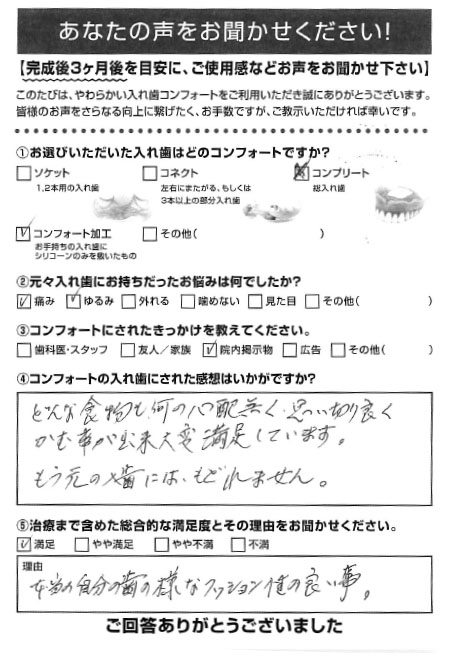 あなたの声をお聞かせください!
【完成後3ヶ月後を目安に、ご使用感などお声をお聞かせ下さい】
このたびは、やわらかい入れ歯コンフォートをご利用いただき誠にありがとうございます。
皆様のお声をさらなる向上に繋げたく、お手数ですが、ご教示いただければ幸いです。
①お選びいただいた入れ歯はどのコンフォートですか?
□ソケット
1,2本用の入れ歯
□コネクト
左右にまたがる、もしくは
3本以上の部分入れ歯
☑コンプリート
総入れ歯
☑コンフォート加工
お手持ちの入れ歯に
シリコーンのみを敷いたもの
□その他( )
②元々入れ歯にお持ちだったお悩みは何でしたか?
☑痛み ☑ゆるみ □外れる □噛めない □見た目 □その他( )
③コンフォートにされたきっかけを教えてください。
□歯科医・スタッフ □友人/家族 ☑院内掲示物 □広告 □その他( )
④コンフォートの入れ歯にされた感想はいかがですか?
どんな食物も何の心配無く、思い切り良く
かむ事が出来大変満足しています。
もう元の歯には、もどれません。
⑤治療まで含めた総合的な満足度とその理由をお聞かせください。
☑満足 □やや満足 □やや不満 □不満
理由
本当の自分の歯の様なクッション性の良い事。
ご回答ありがとうございました